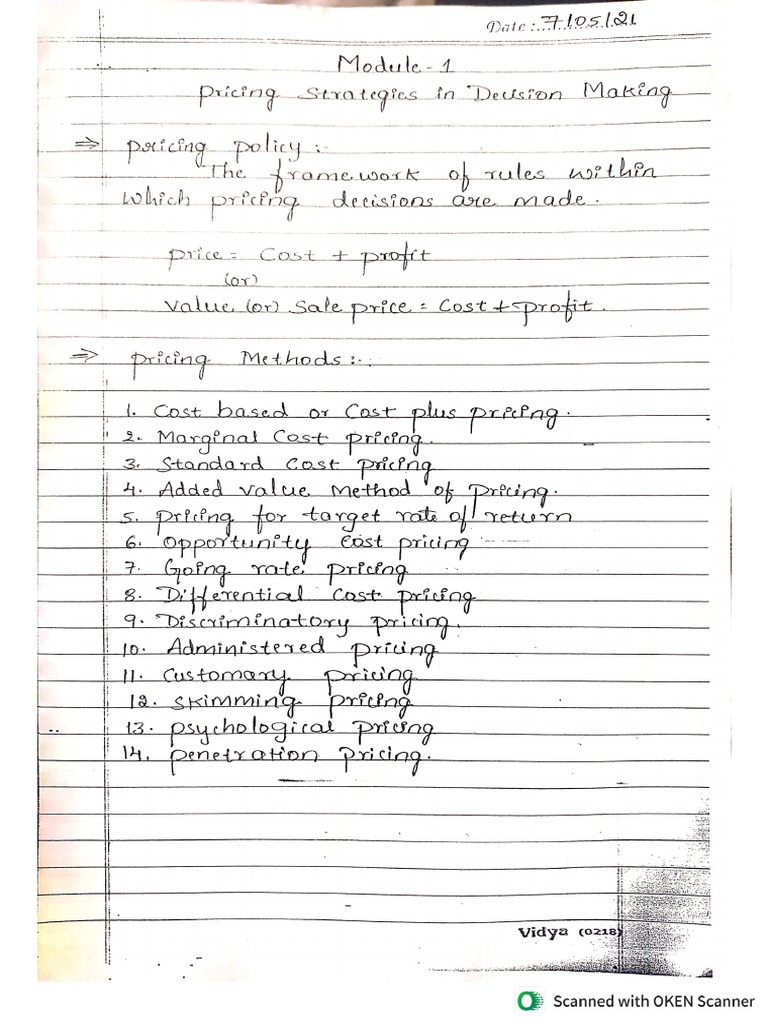 Date: 7/05/21
Module - 1
Pricing Strategies in Decision Making
⇒ pricing policy :-
The framework of rules within
which pricing decisions are made.
price = Cost + profit
(or)
value (or) Sale price = Cost + profit.
⇒ pricing Methods :-
1. Cost based or Cost plus pricing.
2. Marginal Cost pricing.
3. Standard Cost pricing
4. Added value Method of pricing.
5. pricing for target rate of return
6. Opportunity Cost pricing
7. Going rate pricing
8. Differential Cost pricing
9. Discriminatory pricing.
10. Administered pricing
11. Customary pricing
12. Skimming pricing
13. psychological pricing
14. penetration pricing.
Vidya (0218)
Scanned with OKEN Scanner